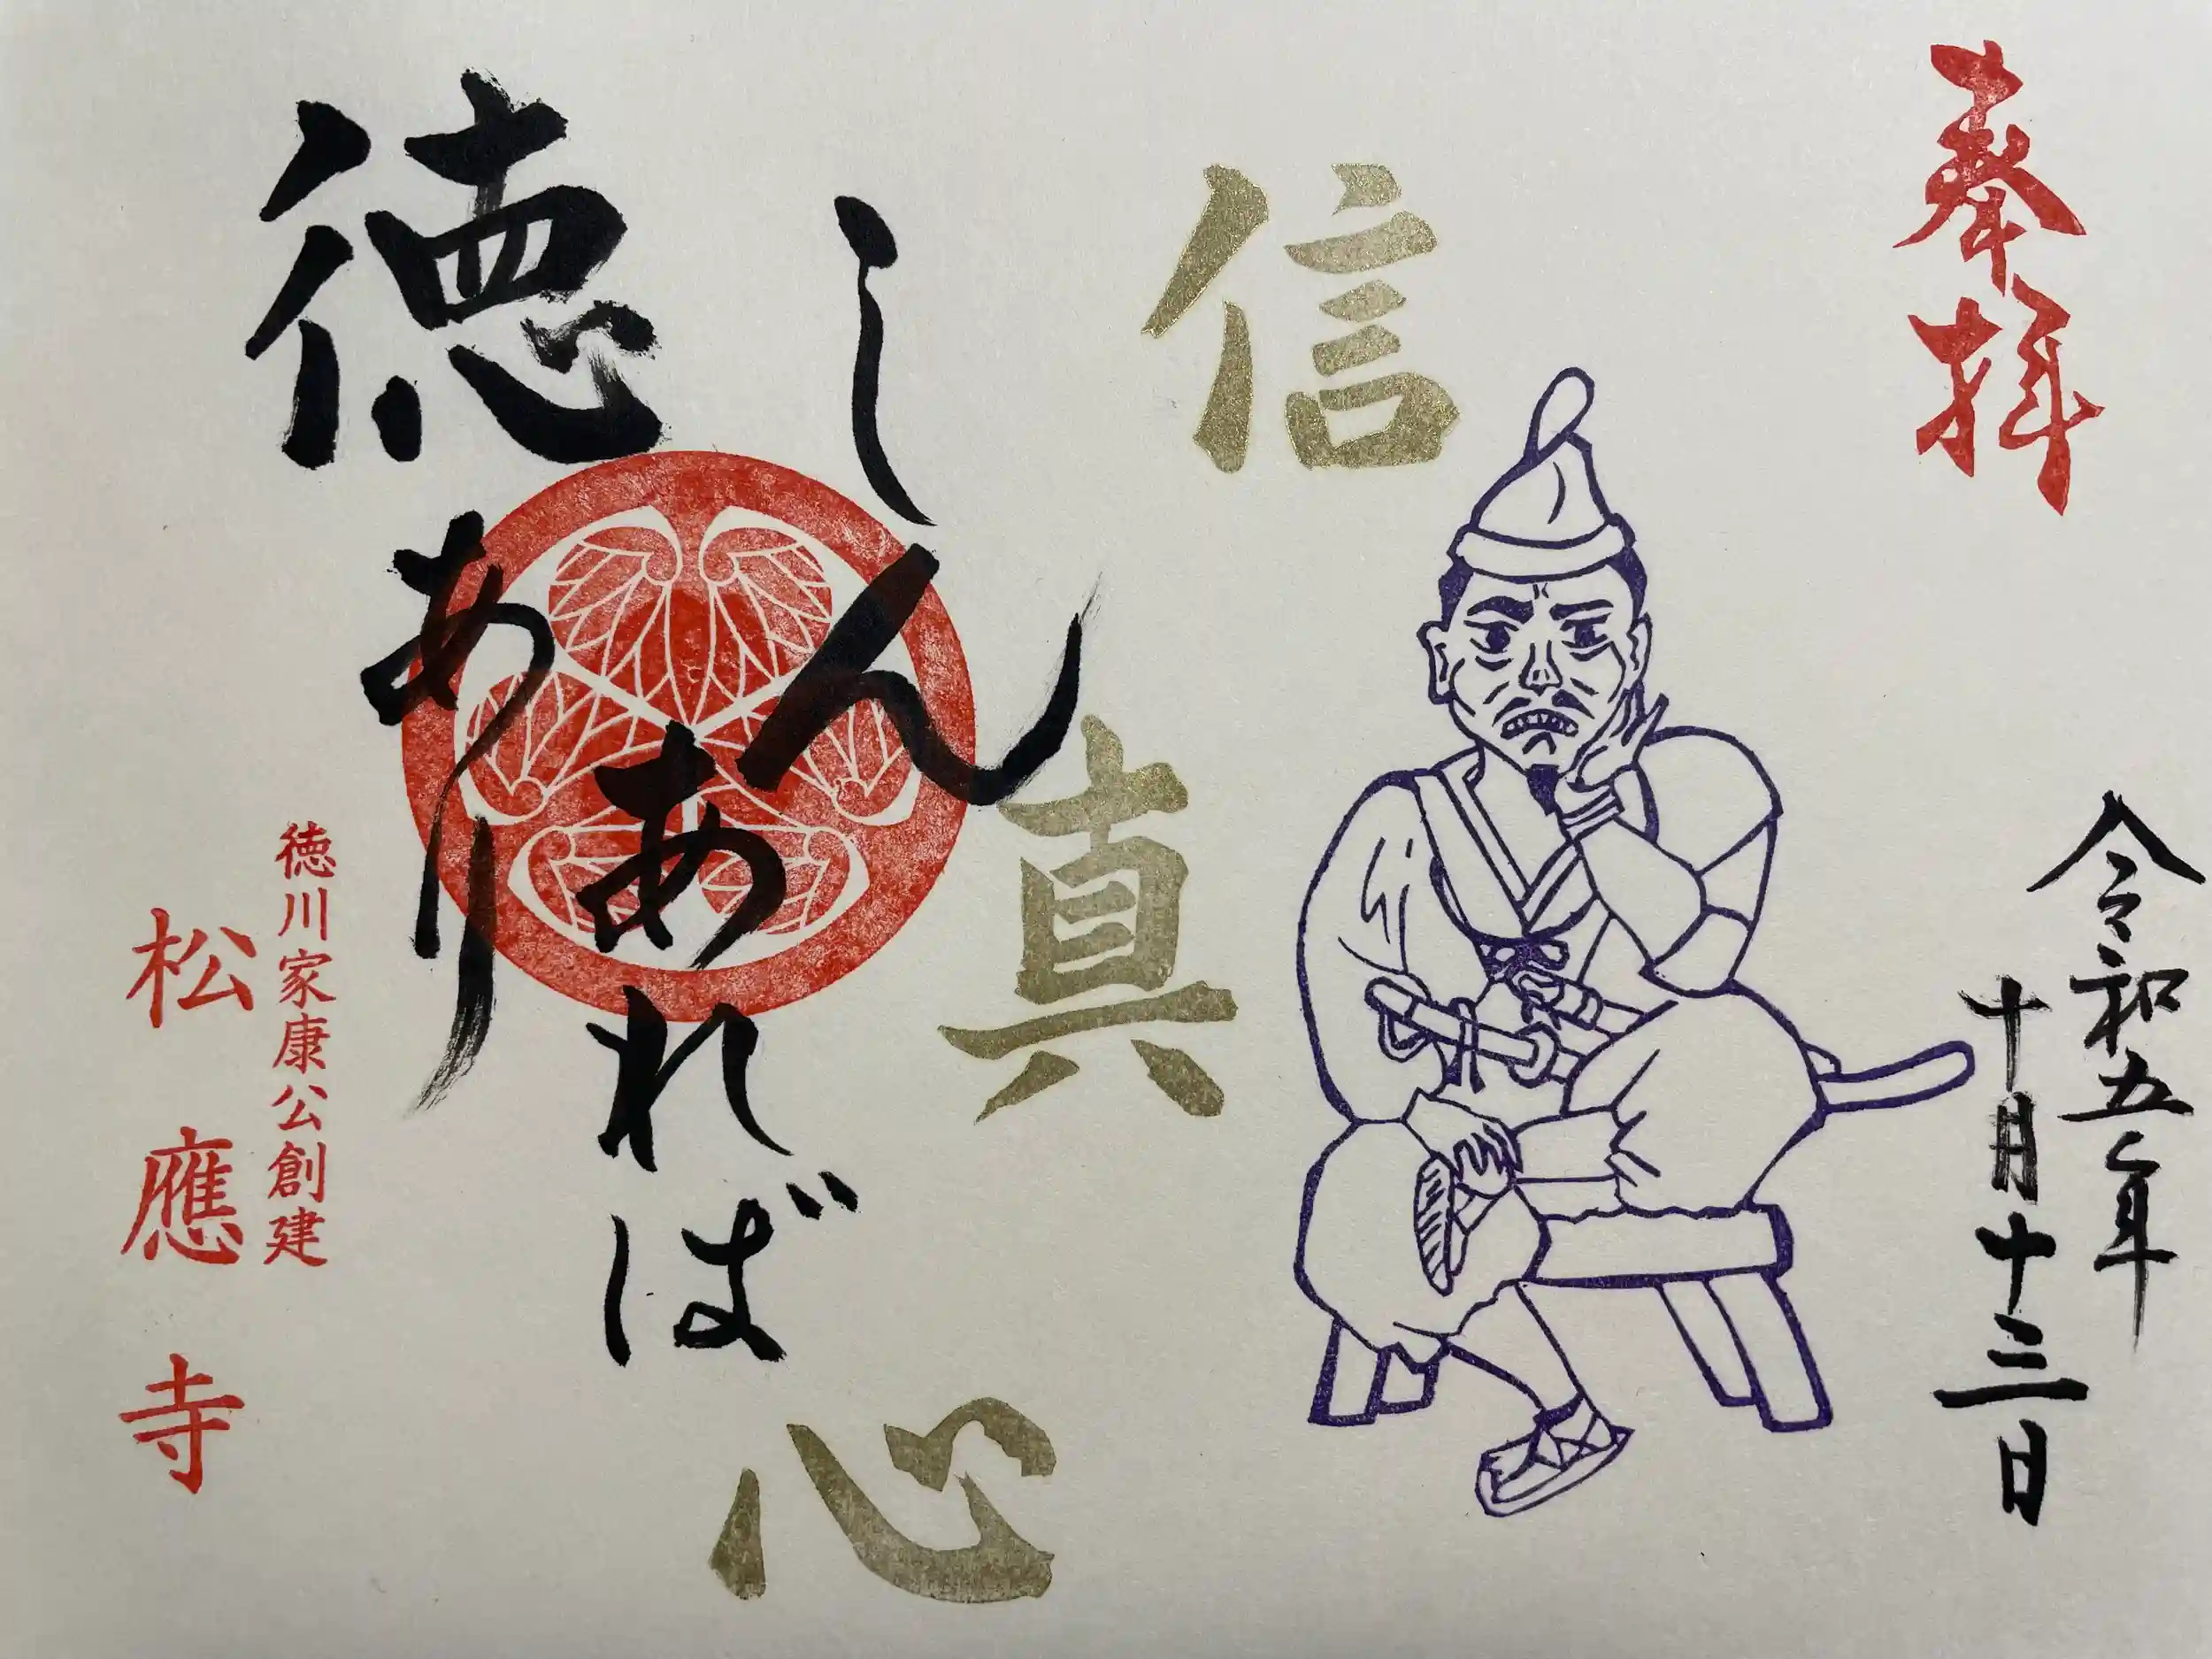 奉拝
令和五年
十月十三日
信
真
心
しん
あれば
徳あり
徳川家康公創建
松應寺